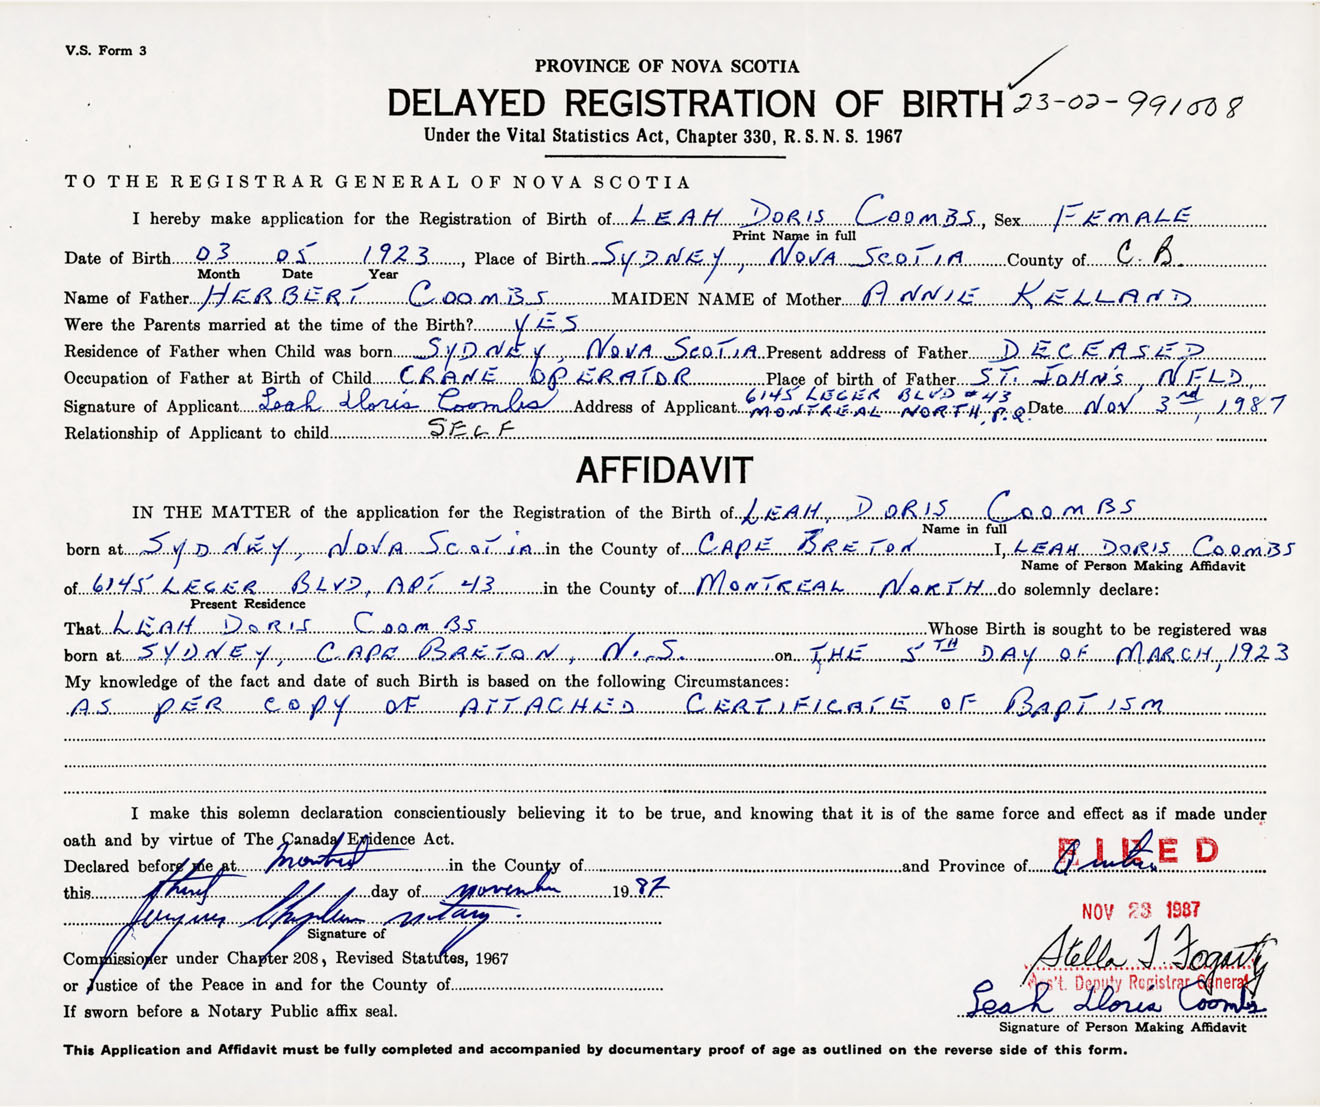 V.S. Form 3
PROVINCE OF NOVA SCOTIA
DELAYED REGISTRATION OF BIRTH 23-02-991008
Under the Vital Statistics Act, Chapter 330, R.S.N.S. 1967
TO THE REGISTRAR GENERAL OF NOVA SCOTIA
I hereby make application for the Registration of Birth of LEAH DORIS COOMBS, Sex FEMALE
Print Name in full
Date of Birth 03 05 1923, Place of Birth SYDNEY, NOVA SCOTIA County of C.B.
Month Date Year
Name of Father HERBERT COOMBS MAIDEN NAME of Mother ANNIE KELLAND
Were the Parents married at the time of the Birth? YES
Residence of Father when Child was born SYDNEY, NOVA SCOTIA Present address of Father DECEASED
Occupation of Father at Birth of Child CRANE OPERATOR Place of birth of Father ST. JOHN'S, NFLD,
Signature of Applicant Leah Doris Coombs Address of Applicant 6145 LEGER BLVD #43 MONTREAL NORTH, P.Q. Date NOV 3rd, 1987
Relationship of Applicant to child SELF
AFFIDAVIT
IN THE MATTER of the application for the Registration of the Birth of LEAH, DORIS COOMBS
Name in full
born at SYDNEY, NOVA SCOTIA in the County of CAPE BRETON I, LEAH DORIS COOMBS
Name of Person Making Affidavit
of 6145 LEGER BLVD, APT 43 in the County of MONTREAL NORTH do solemnly declare:
Present Residence
That LEAH DORIS COOMBS Whose Birth is sought to be registered was
born at SYDNEY, CAPE BRETON, N.S. on THE 5TH DAY OF MARCH, 1923
My knowledge of the fact and date of such Birth is based on the following Circumstances:
AS PER COPY OF ATTACHED CERTIFICATE OF BAPTISM
I make this solemn declaration conscientiously believing it to be true, and knowing that it is of the same force and effect as if made under
oath and by virtue of The Canada Evidence Act.
Declared before me at Montreal in the County of and Province of
FILED
this day of november 1987
NOV 23 1987
notary.
Signature of
Stella T. Fogarty
Commissioner under Chapter 208, Revised Statutes, 1967
Ass't. Deputy Registrar General
or Justice of the Peace in and for the County of
Leah Doris Coombs
If sworn before a Notary Public affix seal.
Signature of Person Making Affidavit
This Application and Affidavit must be fully completed and accompanied by documentary proof of age as outlined on the reverse side of this form.